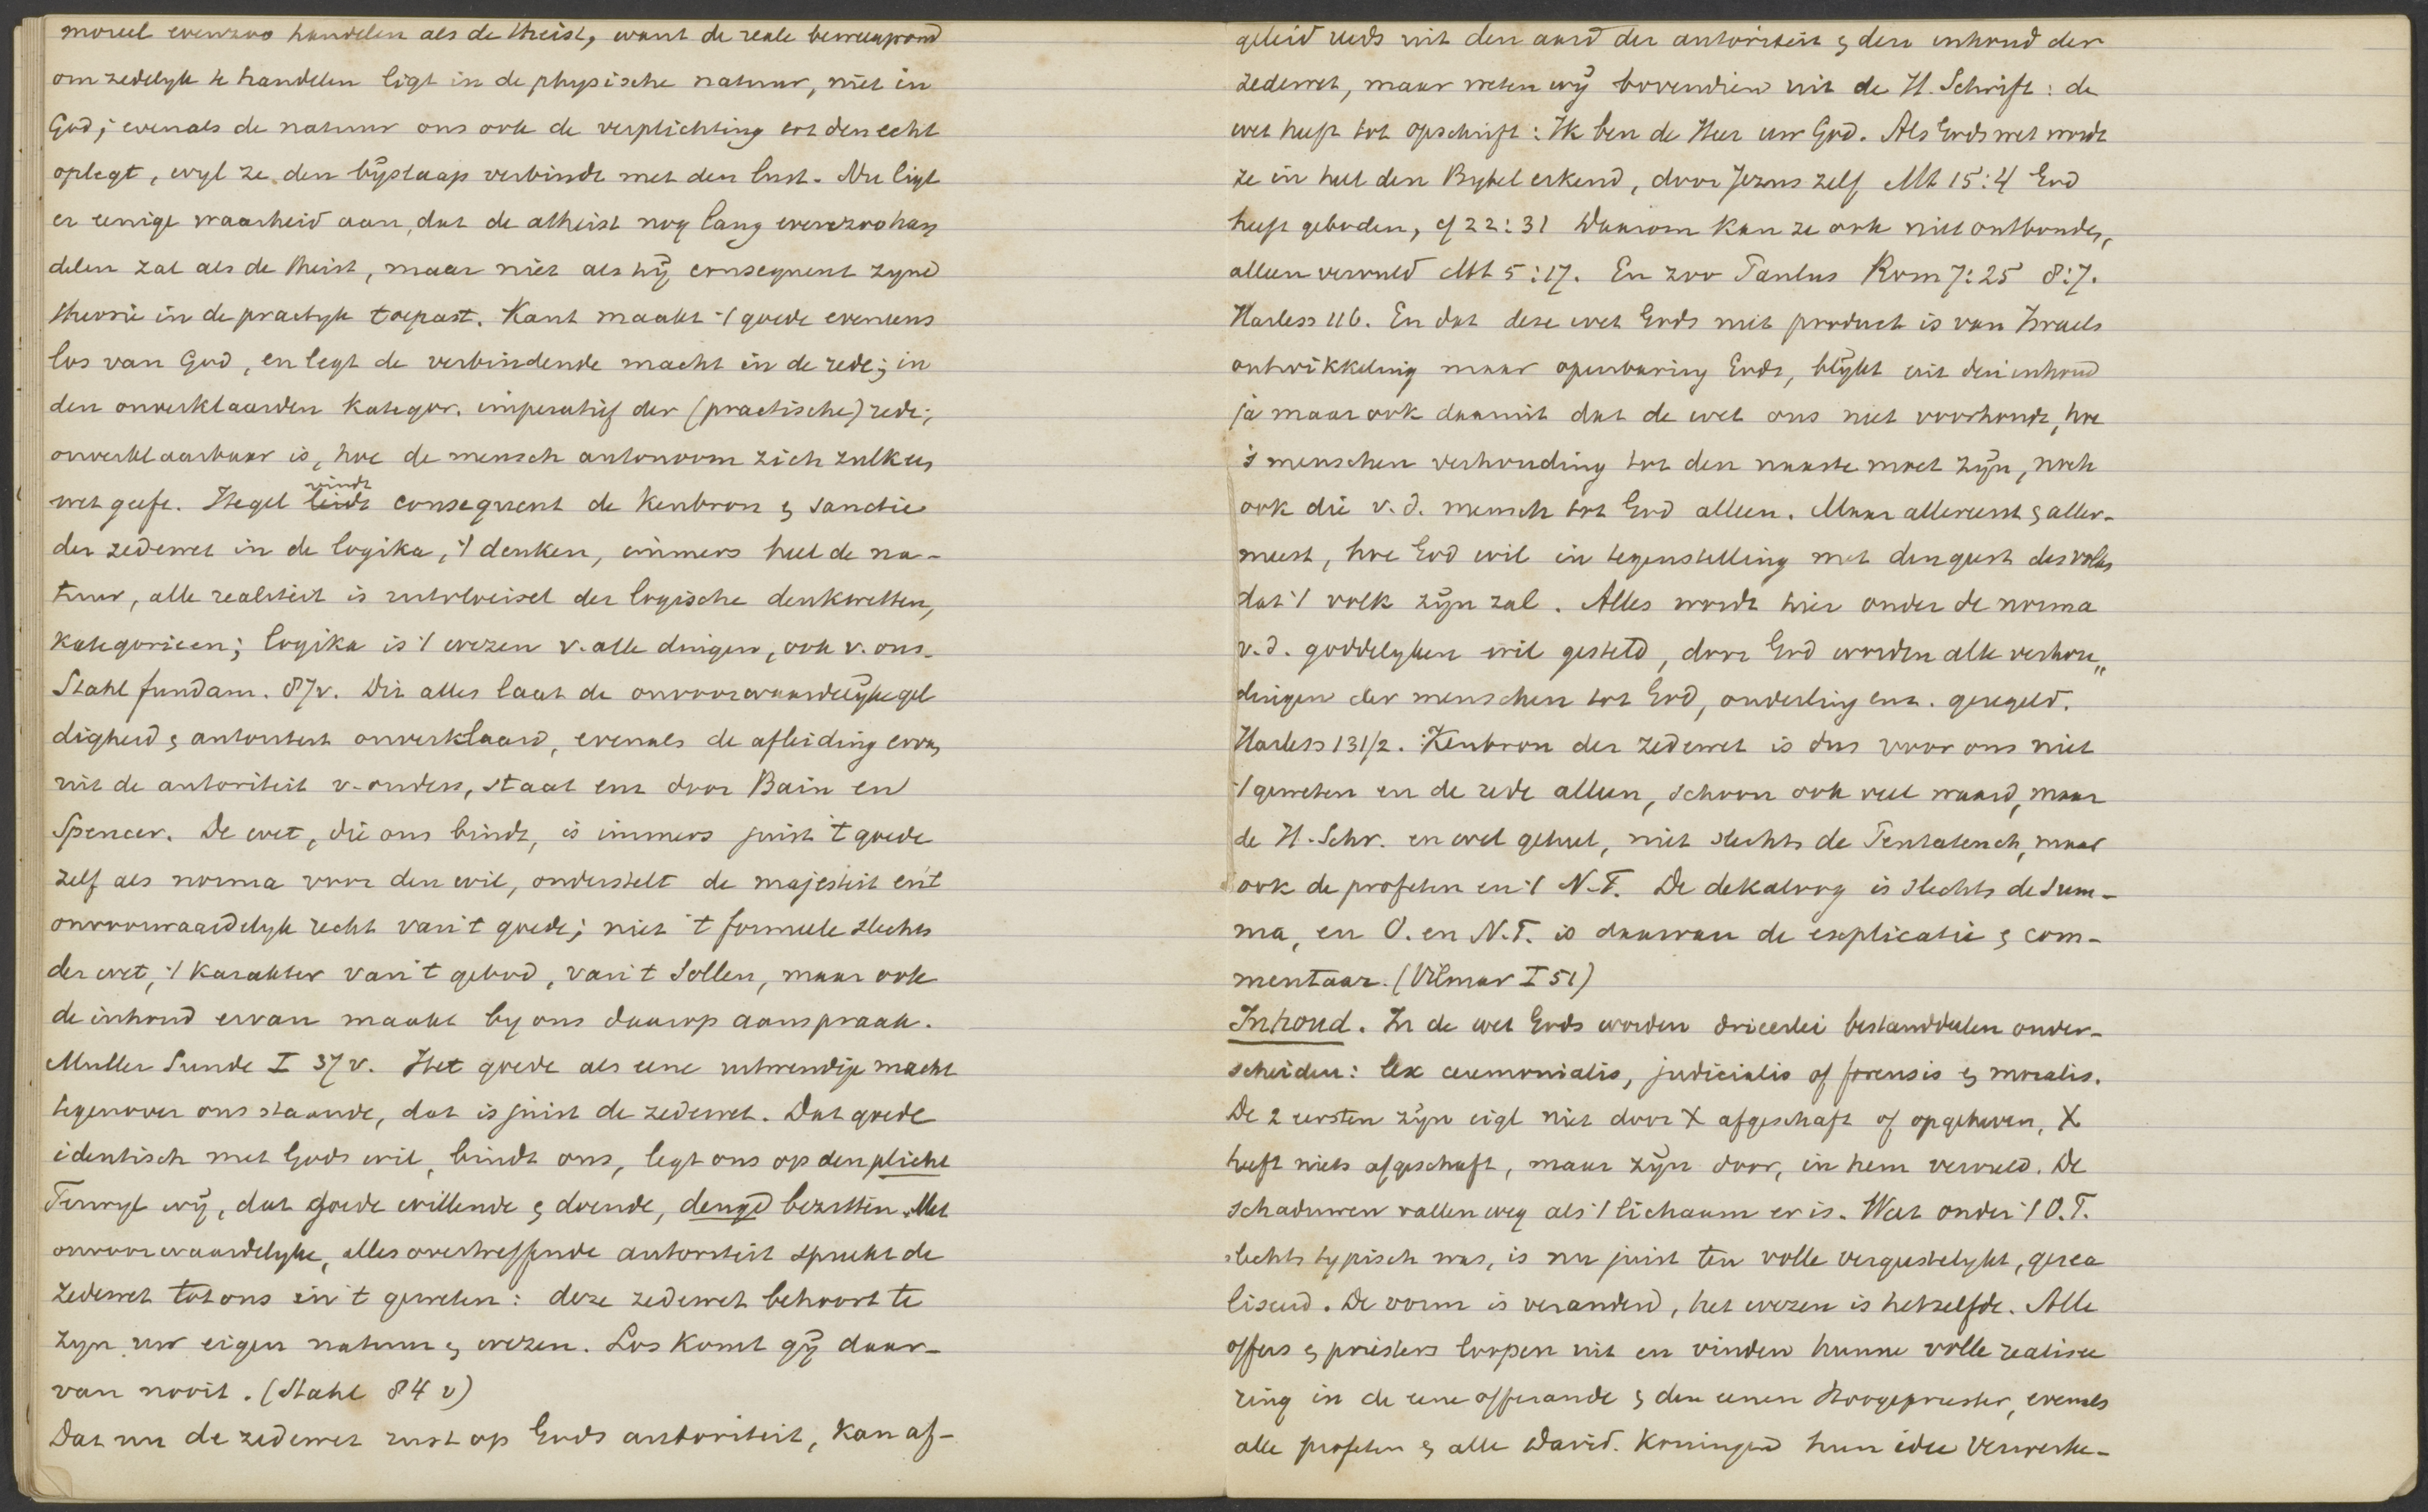 moreel evenzoo handelen als de theist, want de reale beweegrond
om zedelyk te handelen ligt in de physische natuur, niet in
God; evenals de natuur ons ook de verplichting tot den echt
oplegt, wyl ze den bÿslaap verbindt met den lust. Nu ligt
er eenige waarheid aan, dat de atheist nog lang evenzoo han
delen zal als de theist, maar niet als hÿ consequent zyne
theorie in de practyk toepast. Kant maakt 't goede eveneens
los van God, en legt de verbindende macht in de rede; in
den onverklaarden kategor. imperatief der (practische) rede;
onverklaarbaar is, hoe de mensch autonoom zich zulk een
wet geeft. Hegel vindt consequent de kenbron & sanctie
der zedewet in de logika, 't denken, immers heel de na-
tuur, alle realiteit is uitvloeisel der logische denkwetten,
kategorieen; logika is 't wezen v. alle dingen, ook v. ons.
Stahl fundam. 87v. Dit alles laat de onvoorwaardelÿke gel
digheid & autoriteit onverklaard, evenals de afleiding ervan
uit de autoriteit v. ouders, staat enz door Bain en
Spencer. De wet, die ons bindt, is immers juist 't goede
zelf als norma voor den wil, onderstelt de majesteit en 't
onvoorwaardelyk recht van 't goede; niet 't formeele slechts
der wet, 't karakter van 't gebod, van 't Sollen, maar ook
de inhoud ervan maakt by ons daarop aanspraak.
Muller Sunde I 37 v. Het goede als eene uitwendige macht
tegenover ons staande, dat is juist de zedewet. Dat goede
identisch met Gods wil, bindt ons, legt ons op den plicht
Terwyl wÿ, dat goede willende & doende, deugd bezitten. Met
onvoorwaardelyke, alles overtreffende autoriteit spreekt de
zedewet tot ons in 't geweten: deze zedewet behoort te
zyn uw eigen natuur & wezen. Los komt gÿ daar-
van nooit. (Stahl 84 v)
Dat nu de zedewet rust op Gods autoriteit, kan af-
geleid reeds uit den aard der autoriteit & den inhoud der
zedewet, maar weten wÿ bovendien uit de H. Schrift: de
wet heeft tot opschrift: Ik ben de Heer uw God. Als Gods wet wordt
ze in heel den Bybel erkend, door Jezus zelf Mt 15:4 God
heeft geboden, cf 22:31 Daarom kan ze ook niet ontbonden,
alleen vervuld Mt 5:17. En zoo Paulus Rom 7:25 8:7.
Harless 116. En dat deze wet Gods niet product is van Israels
ontwikkeling maar openbaring Gods, blÿkt uit den inhoud
ja maar ook daaruit dat de wet ons niet voorhoudt, hoe
's menschen verhouding tot den naaste moet zÿn, noch
ook die v.d. mensch tot God alleen. Maar allereerst & aller-
meest, hoe God wil in tegenstelling met den geest des volks
dat 't volk zÿn zal. Alles wordt hier onder de norma
v.d. goddelyken wil gesteld, door God worden alle verhou„
dingen der menschen tot God, onderling enz. geregeld.
Harless 131/2. Kenbron der zedewet is dus voor ons niet
't geweten en de rede alleen, schoon ook veel waard, maar
de H. Schr. en wel geheel, niet slechts de Pentateuch, maar
ook de profeten en 't N.T. De dekaloog is slechts de sum-
ma, en O. en N.T. is daarvan de explicatie & com-
mentaar. (Vilmar I 51)
Inhoud. In de wet Gods worden drieerlei bestanddeelen onder-
scheiden: lex ceremonialis, judicialis of forensis & moralis.
De 2 eersten zÿn eigl niet door X afgeschaft of opgeheven, X
heeft niets afgeschaft, maar zÿn door, in hem vervuld. De
schaduwen vallen weg als 't lichaam er is. Wat onder 't O.T.
slechts typisch was, is nu juist ten volle vergeestelykt, gerea
liseerd. De vorm is veranderd, het wezen is hetzelfde. Alle
offers & priesters loopen uit en vinden hunne volle realisee
ring in de eene offerande & den eenen Hoogepriester, evenals
alle profeten & alle David. Koningen hun idee verwerke-